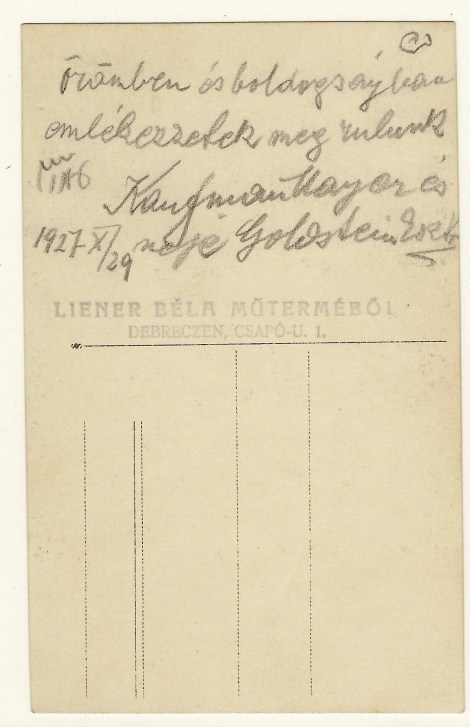 Örömben és boldogságban
emlékezzetek meg rulunk
Kaufman Mayer és
1927 XI/29 neje Goldstein Eszti
LIENER BÉLA MŰTERMÉBŐL
DEBRECZEN, CSAPÓ-U. 1.